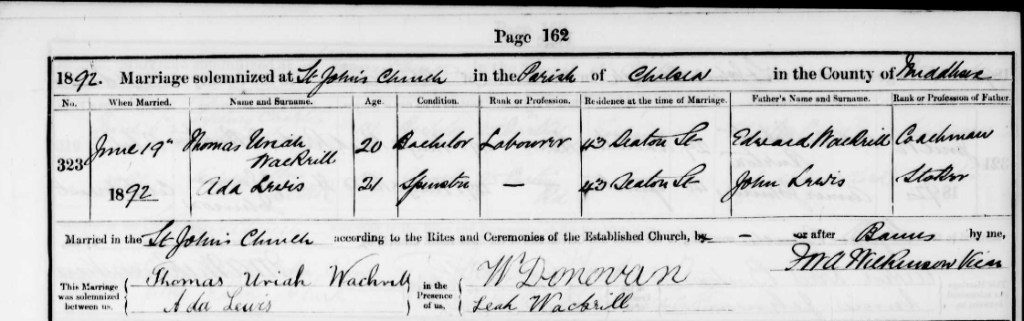 Page 162
1892. Marriage solemnized at St John's Church in the Parish of Chelsea in the County of Middlesex
No. When Married. Name and Surname. Age. Condition. Rank or Profession. Residence at the time of Marriage. Father's Name and Surname. Rank or Profession of Father.
323 June 19th 1892 Thomas Uriah Wackrill 20 Bachelor Labourer 43 Seaton St Edward Wackrill Coachman
Ada Lewis 21 Spinster — 43 Seaton St John Lewis Stoker
Married in the St John's Church according to the Rites and Ceremonies of the Established Church, by — or after Banns by me,
Wilkinson Vicar
This Marriage was solemnized between us, Thomas Uriah Wackrill in the Presence of us, W Donovan
Ada Lewis Leah Wackrill